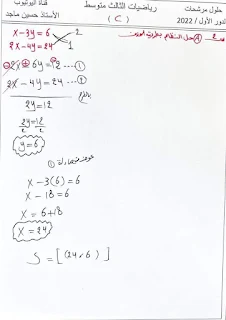 حلول مرشحات رياضيات الثالث متوسط قناة اليوتيوب
الدور الأول / 2022 ( C ) الأستاذ حسين ماجد
حل النظام
x - 3y = 6 2
2x - 4y = 24 1
2x 6y = 12 ①
2x - 4y = 24 ②
2y = 12
2y/2 = 12/2
y = 6
عوض في معادلة ①
x - 3(6) = 6
x - 18 = 6
x = 6 + 18
x = 24
S = [(24, 6)]